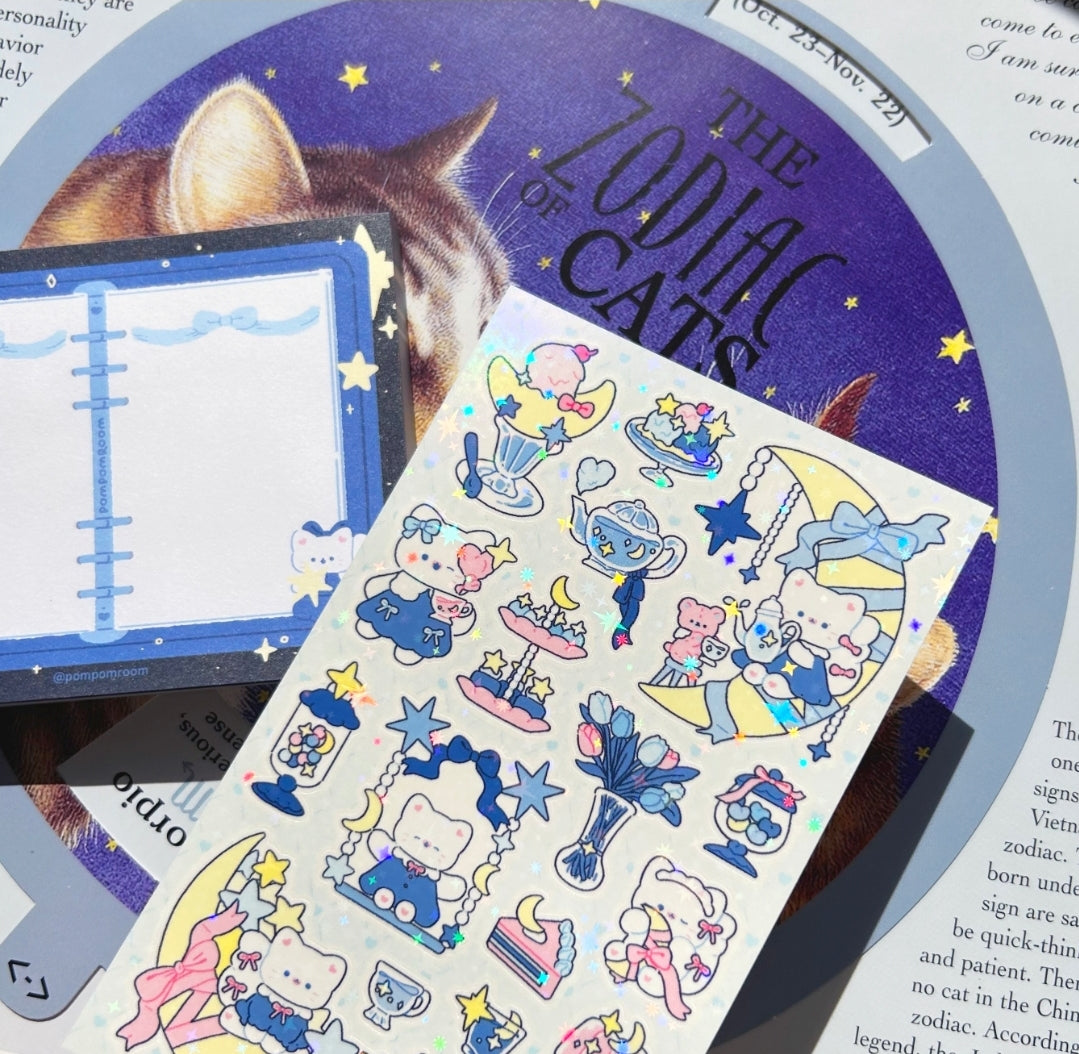 ey are
personality
avior
dely
r
(Oct. 23–Nov. 22)
come to e
I am sur
on a c
comi
THE
ZODIAC
OF
CATS
pompomroom
@pompomroom
erious,
ense
orpio
The
one
signs
Vietn
zodiac. T
born unde
sign are sa
be quick-thin
and patient. Then
no cat in the Chin
zodiac. According
legend, the